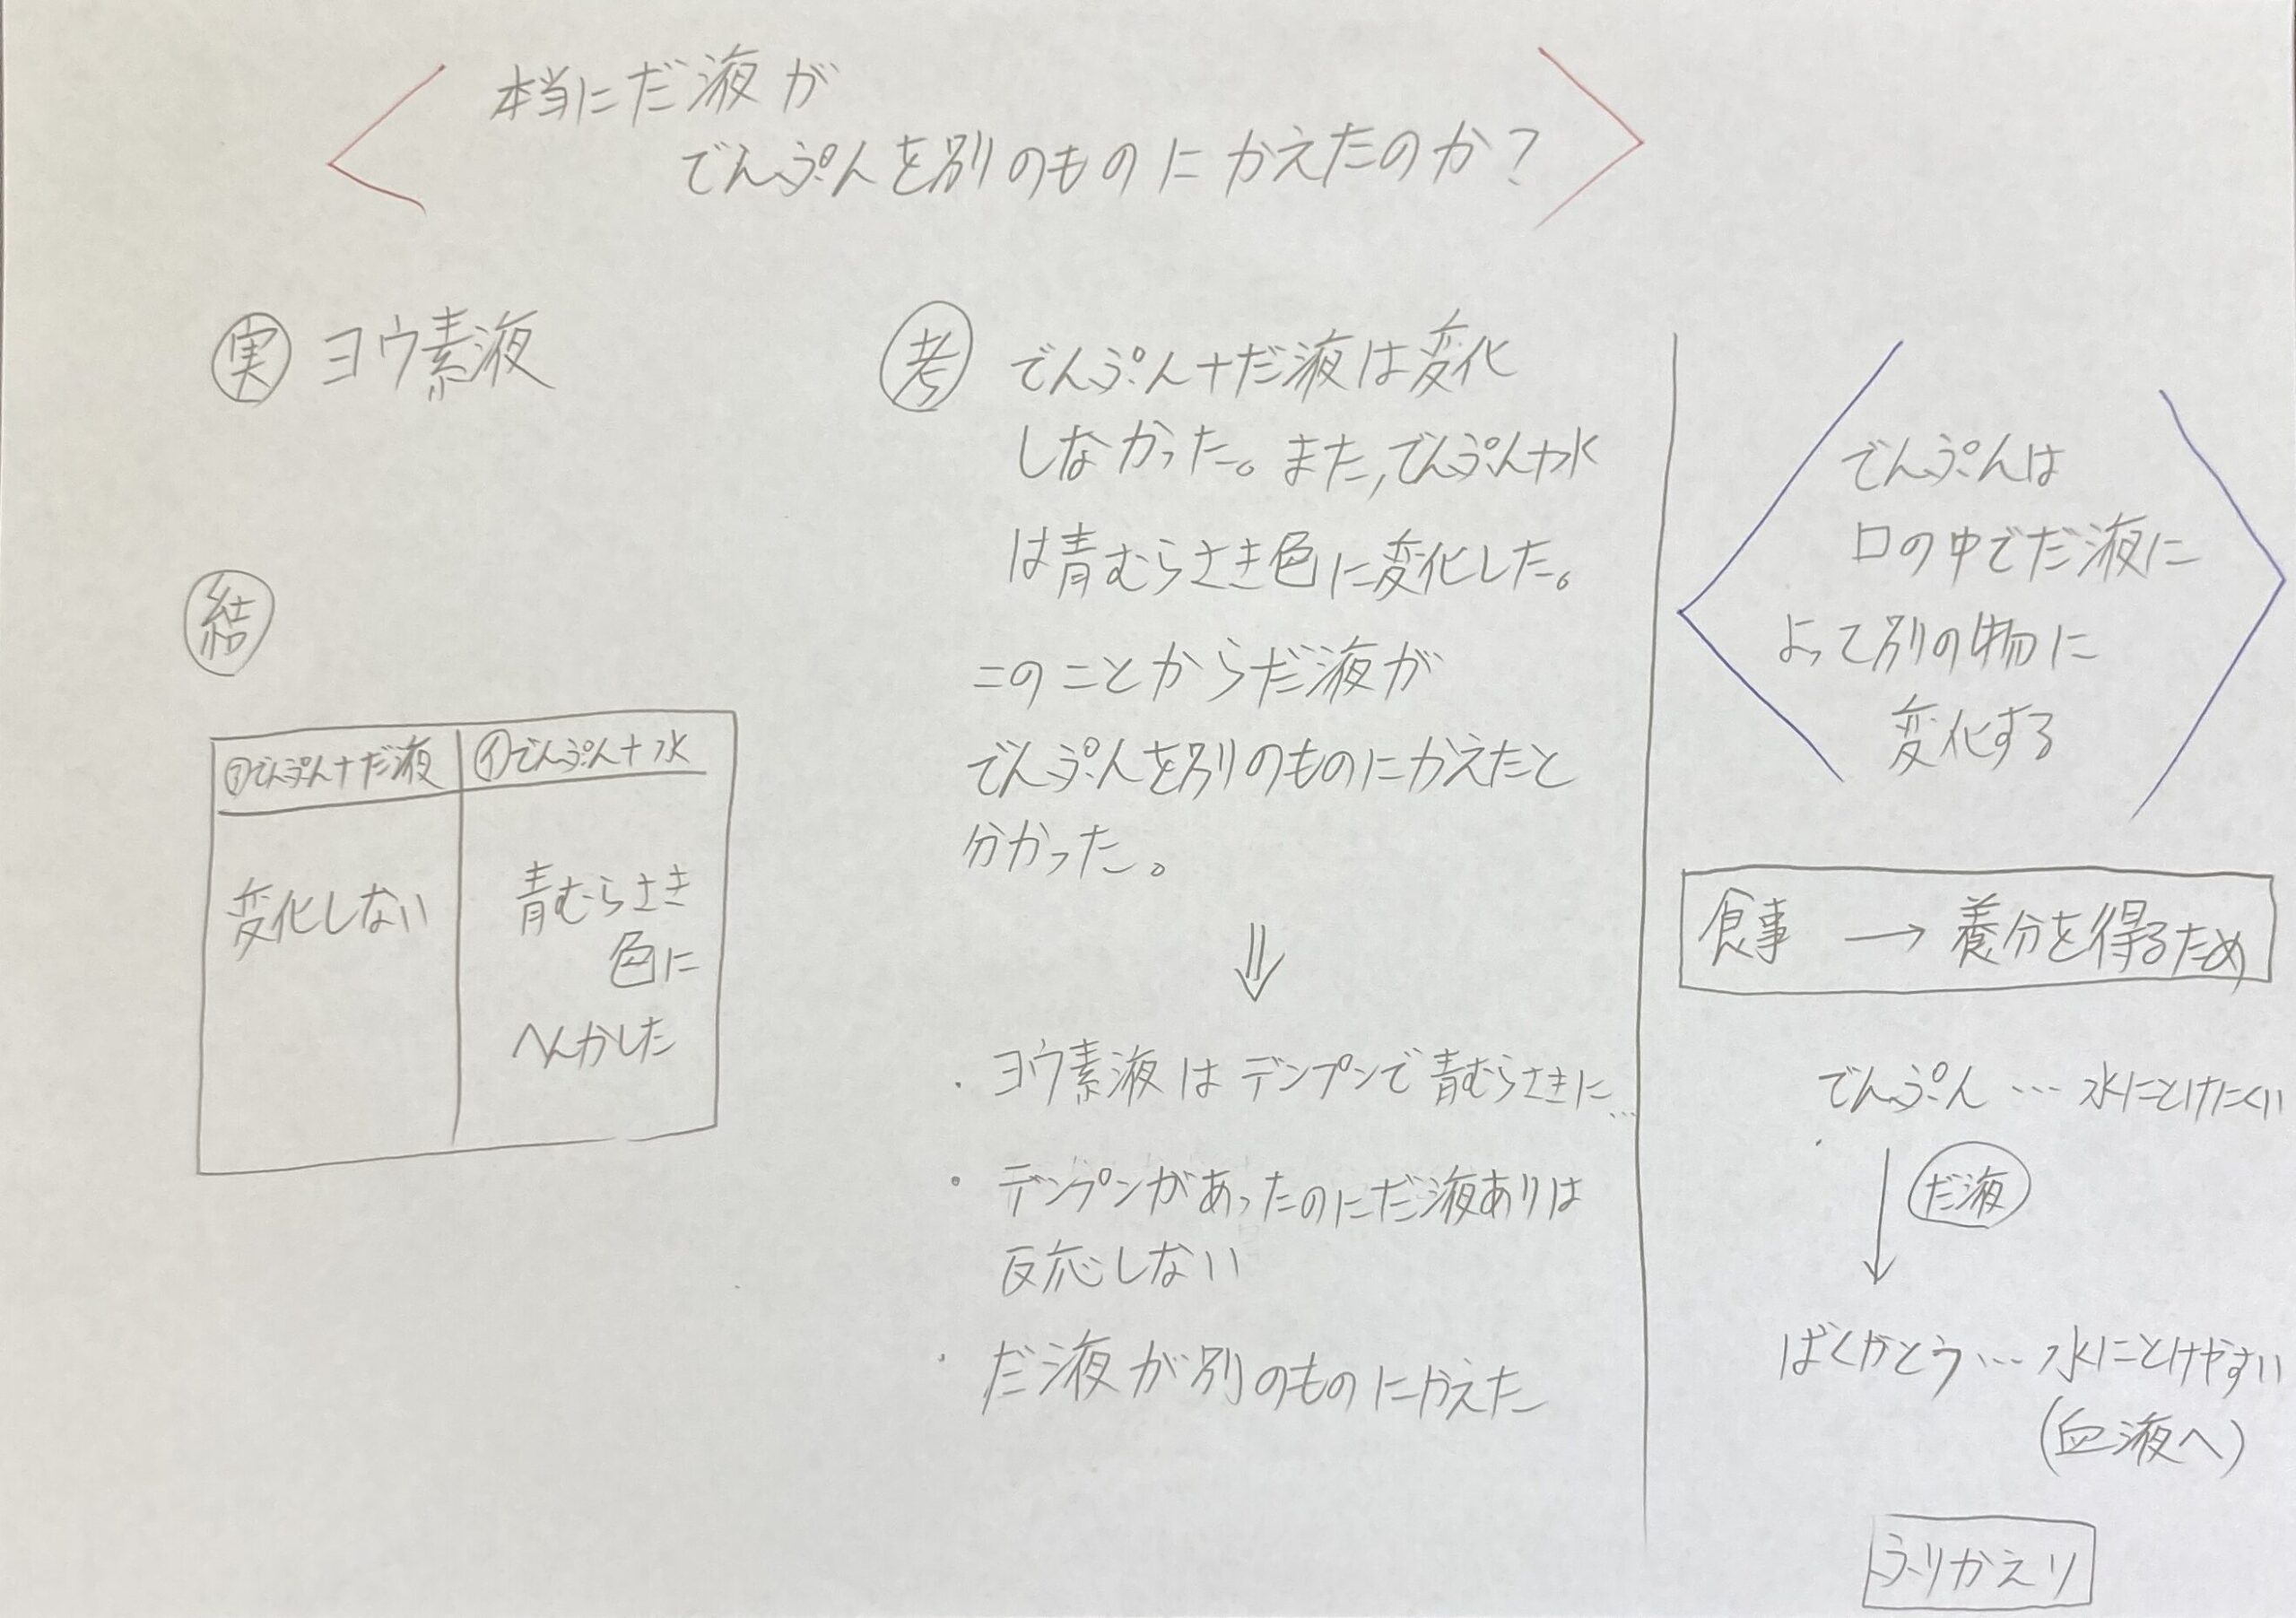 本当にだ液が
でんぷんを別のものにかえたのか?
実 ヨウ素液
結
㋐でんぷん+だ液
㋑でんぷん+水
変化しない
青むらさき
色に
へんかした
考 でんぷん+だ液は変化
しなかった。また,でんぷん+水
は青むらさき色に変化した。
このことからだ液が
でんぷんを別のものにかえたと
分かった。
⇓
・ヨウ素液はデンプンで青むらさきに…
・デンプンがあったのにだ液ありは
反応しない
・だ液が別のものにかえた
でんぷんは
口の中でだ液に
よって別の物に
変化する
食事 → 養分を得るため
でんぷん … 水にとけにくい
↓ だ液
ばくがとう … 水にとけやすい
(血液へ)
ふりかえり